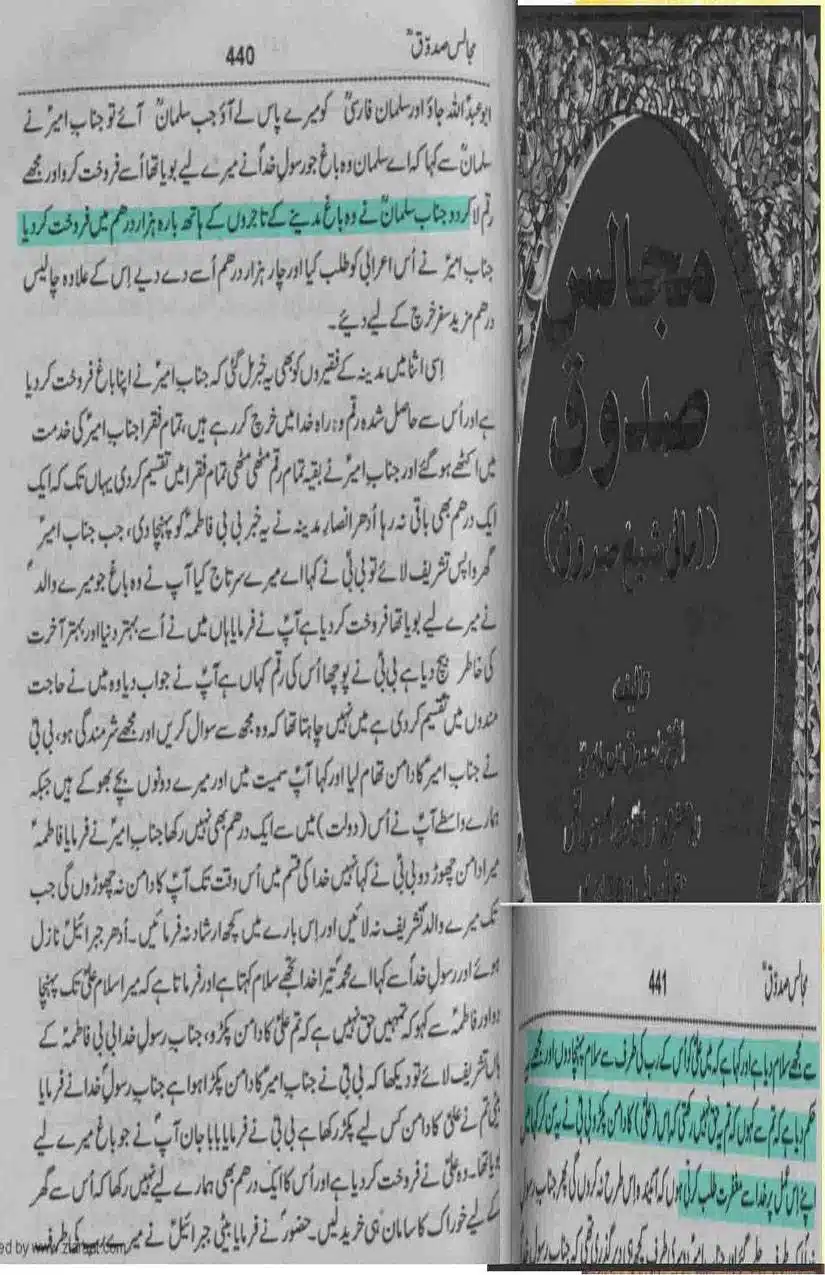 مجالس صدوقؒ
440
ابو عبداللہ جاؤ اور سلمان فارسیؓ کو میرے پاس لے آؤ جب سلمانؓ آئے تو جناب امیرؑ نے
سلمانؓ سے کہا کہ اے سلمان وہ باغ جو رسولِ خداؐ نے میرے لیے بویا تھا اُسے فروخت کرو اور مجھے
رقم لا کر دو جناب سلمانؓ نے وہ باغ مدینے کے تاجروں کے ہاتھ بارہ ہزار درھم میں فروخت کر دیا
جناب امیرؑ نے اُس اعرابی کو طلب کیا اور چار ہزار درھم اُسے دے دیے اِس کے علاوہ چالیس
درھم مزید سفر خرچ کے لیے دئیے۔
اِسی اثنا میں مدینہ کے فقیروں کو بھی یہ خبر مل گئی کہ جناب امیرؑ نے اپنا باغ فروخت کر دیا
ہے اور اُس سے حاصل شدہ رقم وہ راہ خدا میں خرچ کر رہے ہیں، تمام فقرا جناب امیرؑ کی خدمت
میں اکٹھے ہو گئے اور جناب امیرؑ نے بقیہ تمام رقم مٹھی مٹھی تمام فقرا میں تقسیم کر دی یہاں تک کہ ایک
ایک درھم بھی باقی نہ رہا اُدھر انصارِ مدینہ نے یہ خبر بی بی فاطمہؑ کو پہنچا دی، جب جناب امیرؑ
گھر واپس تشریف لائے تو بی بیؑ نے کہا اے میرے سرتاج کیا آپ نے وہ باغ جو میرے والدؐ
نے میرے لیے بویا تھا فروخت کر دیا ہے آپؑ نے فرمایا ہاں میں نے اُسے بہتر دنیا اور بہتر آخرت
کی خاطر بیچ دیا ہے بی بیؑ نے پوچھا اُس کی رقم کہاں ہے آپؑ نے جواب دیا وہ میں نے حاجت
مندوں میں تقسیم کر دی ہے میں نہیں چاہتا تھا کہ وہ مجھ سے سوال کریں اور مجھے شرمندگی ہو، بی بیؑ
نے جناب امیرؑ کا دامن تھام لیا اور کہا آپؑ سمیت میں اور میرے دونوں بچے بھوکے ہیں جبکہ
ہمارے واسطے آپؑ نے اُس (دولت) میں سے ایک درھم بھی نہیں رکھا جناب امیرؑ نے فرمایا فاطمہؑ
میرا دامن چھوڑ دو بی بیؑ نے کہا نہیں خدا کی قسم میں اُس وقت تک آپؑ کا دامن نہ چھوڑوں گی جب
تک میرے والدؐ تشریف نہ لائیں اور اِس بارے میں کچھ ارشاد نہ فرمائیں۔ اُدھر جبرائیلؑ نازل
ہوئے اور رسولِ خداؐ سے کہا اے محمدؐ تیرا خدا تجھے سلام کہتا ہے اور فرماتا ہے کہ میرا سلام علیؑ تک پہنچا
دو اور فاطمہؑ سے کہو کہ تمہیں حق نہیں ہے کہ تم علیؑ کا دامن پکڑو، جناب رسولِ خدا بی بی فاطمہؑ کے
ہاں تشریف لائے تو دیکھا کہ بی بیؑ نے جناب امیرؑ کا دامن پکڑا ہوا ہے جناب رسولِ خداؐ نے فرمایا
بیٹی تم نے علیؑ کا دامن کس لیے پکڑ رکھا ہے بی بیؑ نے فرمایا بابا جان آپؐ نے جو باغ میرے لیے
بویا تھا۔ وہ علیؑ نے فروخت کر دیا ہے اور اُس کا ایک درھم بھی ہمارے لیے نہیں رکھا کہ اُس سے گھر
کے لیے خوراک کا سامان ہی خرید لیں۔ حضورؐ نے فرمایا بیٹی جبرائیلؑ نے میرے رب کی طرف
مجالس
صدوق
(امالی شیخ صدوقؒ)
تالیف
مجالس صدوقؒ
441
سے مجھے سلام دیا ہے اور کہا ہے کہ میں علیؑ کو اُس کے رب کی طرف سے سلام پہنچا دوں اور مجھے
حکم دیا ہے کہ تم سے کہوں کہ تم یہ حق نہیں رکھتی کہ اُس (علیؑ) کا دامن پکڑو بی بیؑ نے یہ سن کر کہا میں
اپنے اس عمل پر خدا سے مغفرت طلب کرتی ہوں کہ آئندہ اِس طرح نہ کروں گی پھر جناب رسولِ